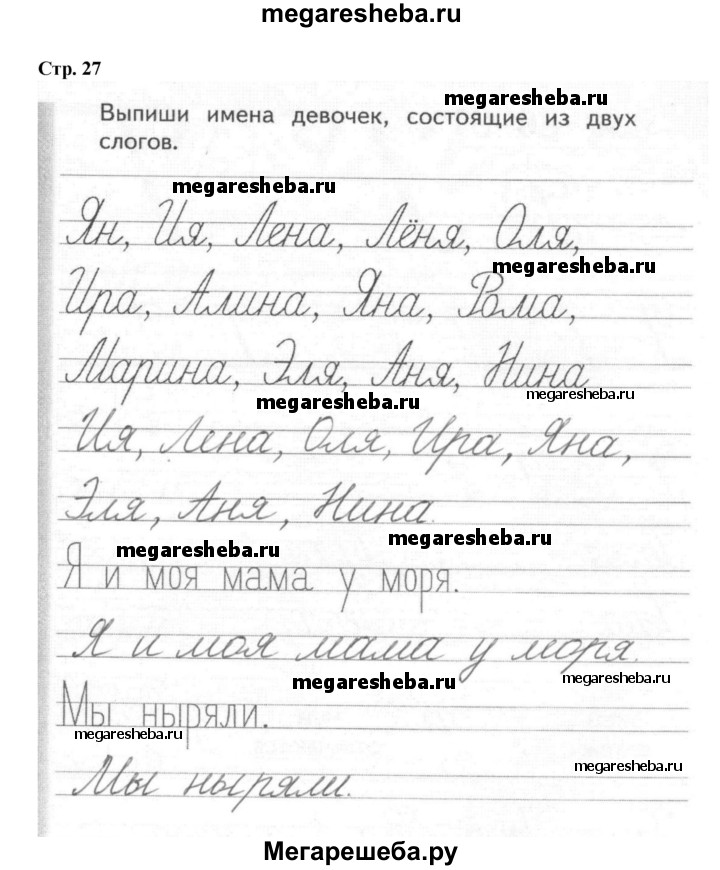 megaresheba.ru
Стр. 27
megaresheba.ru
Выпиши имена девочек, состоящие из двух
слогов.
megaresheba.ru
Ян, Ия, Лена, Лёня, Оля,
megaresheba.ru
Ира, Алина, Яна, Рома,
Марина, Эля, Аня, Нина
megaresheba.ru
megaresheba.ru
Ия, Лена, Оля, Ира, Яна,
Эля, Аня, Нина.
megaresheba.ru
megaresheba.ru
Я и моя мама у моря.
Я и моя мама у моря.
megaresheba.ru
megaresheba.ru
Мы ныряли.
megaresheba.ru
megaresheba.ru
Мы ныряли.
Мегарешеба.ру